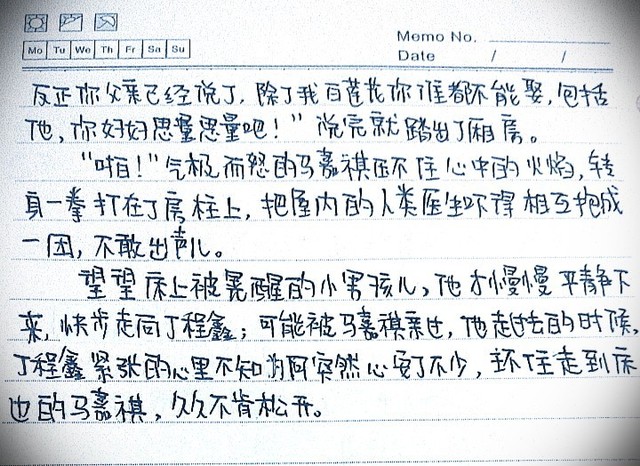 Memo No.
Mo Tu We Th Fr Sa Su
Date / /
反正你父亲已经说了，除了我百莲花你谁都不能娶，包括
他，你好好思量思量吧！”说完就踏出了厢房。
“咁！”气极而怒的马嘉祺压不住心中的火焰，转
身一拳打在了房柱上，把屋内的人类医生吓得相互抱成
一团，不敢出声儿。
望望床上被晃醒的小男孩儿，他才慢慢平静下
来，快步走向丁程鑫；可能被马嘉祺亲过，他走过去的时候，
丁程鑫紧张的心里不知为何突然心安了不少，环住走到床
边的马嘉祺，久久不肯松开。